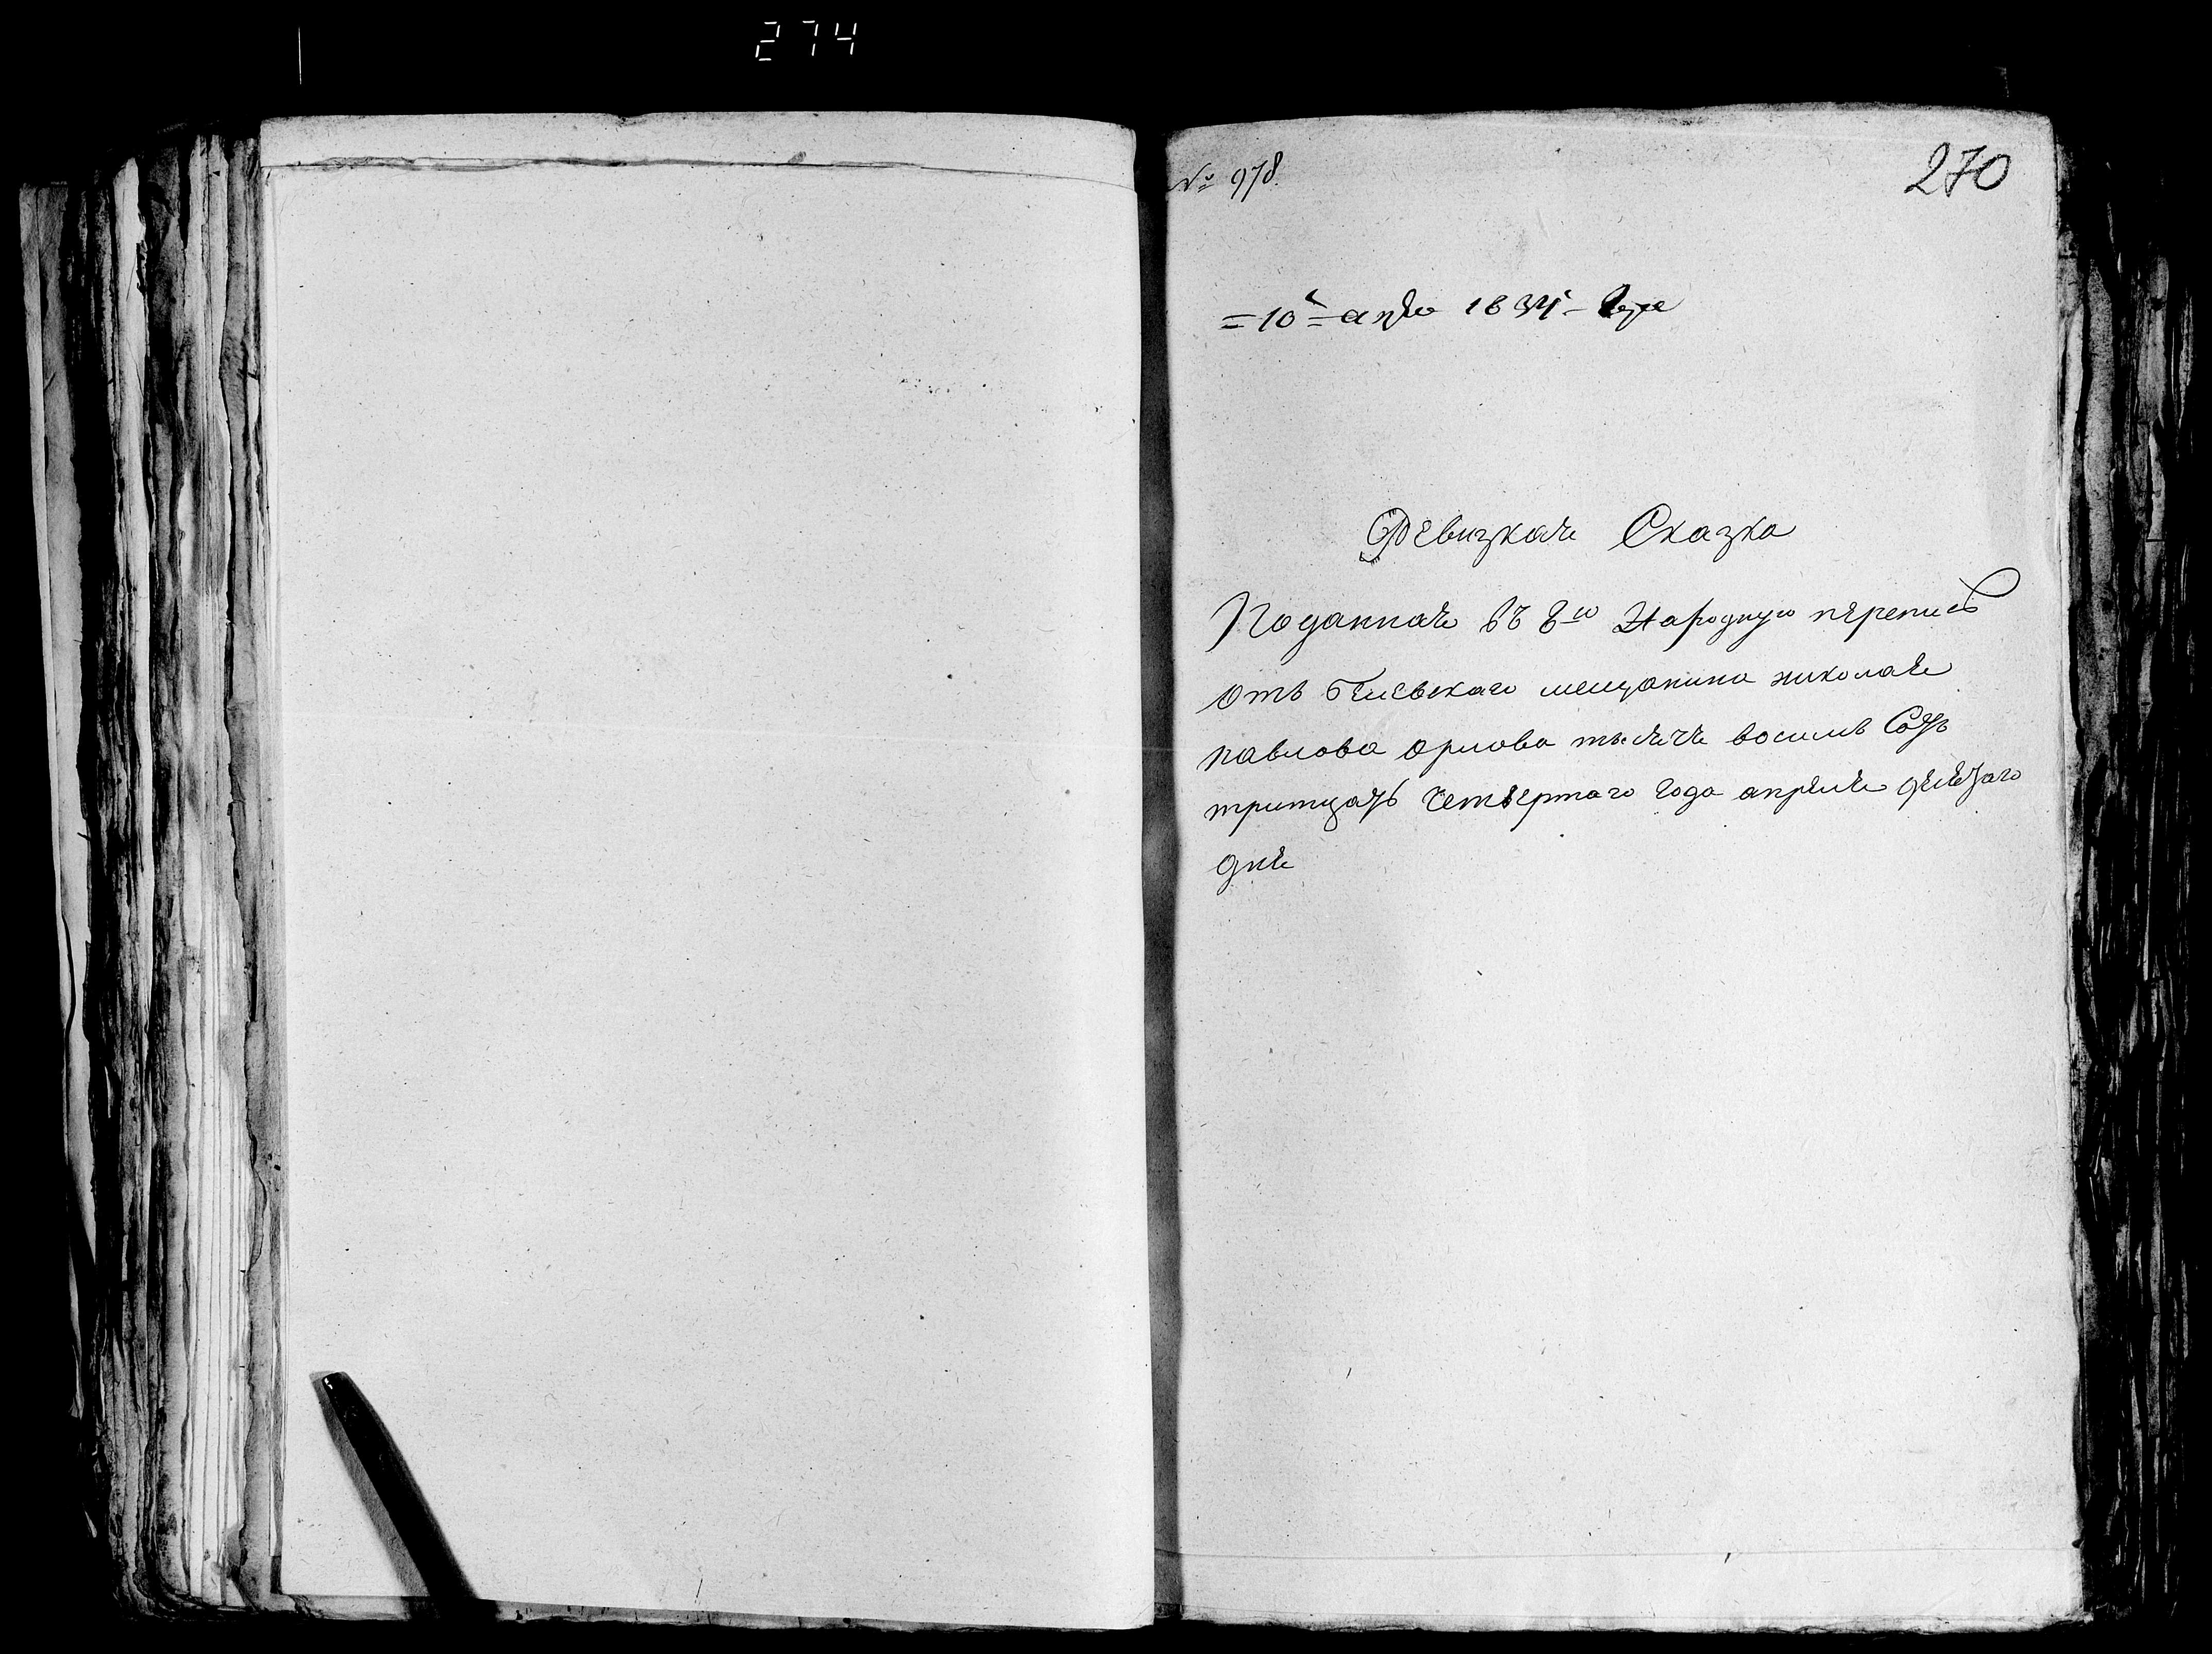 274
№ 978.
270
=10= апре 1834 = года
Ревизкая Сказка
Поданная въ 8ю Народную перепись
отъ Белевскаго мещанина николая
павлова орлова тысяча восемь Сотъ
тритцать Четвертаго года апреля десятаго
дня